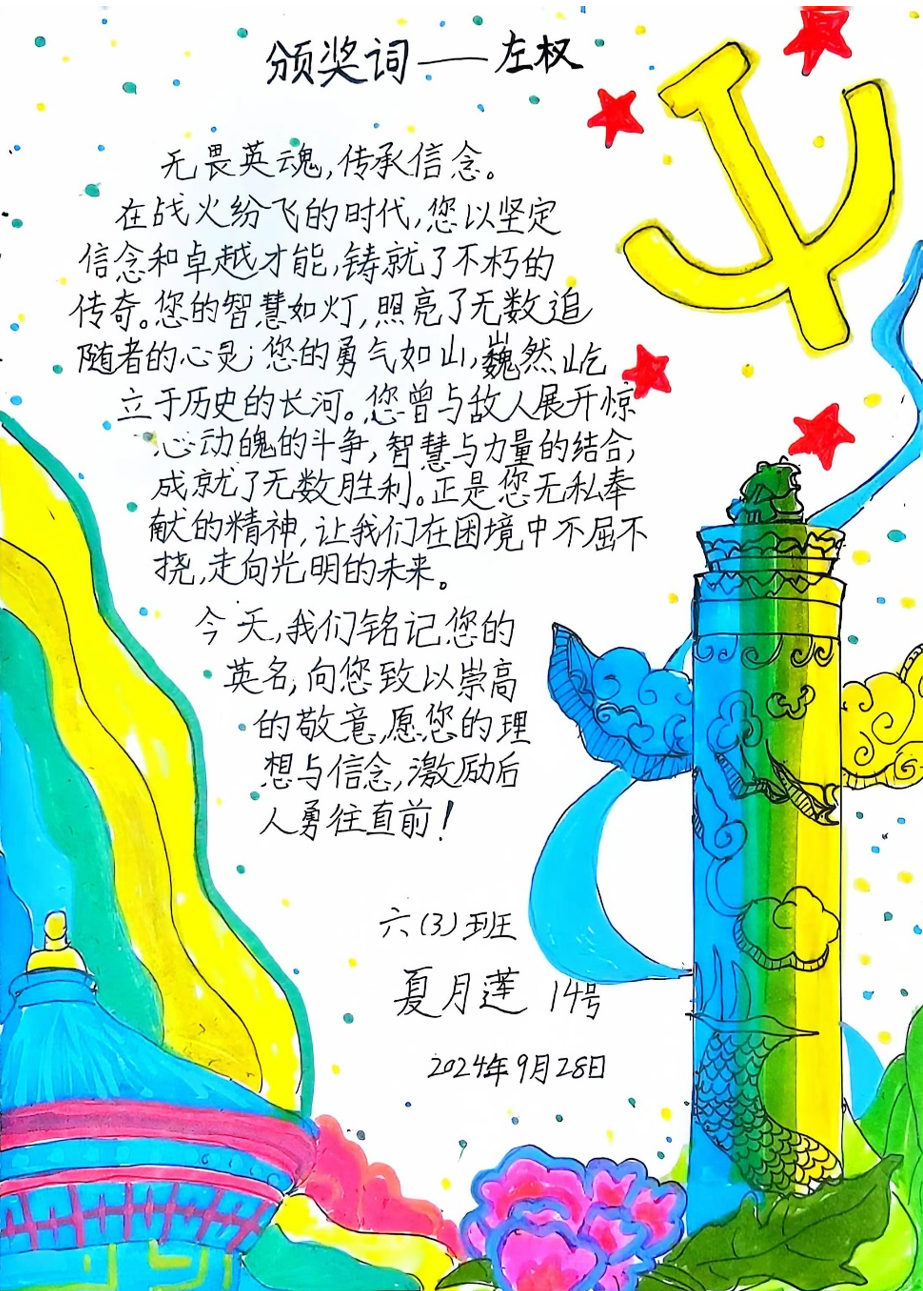 颁奖词——左权
无畏英魂,传承信念。
在战火纷飞的时代,您以坚定
信念和卓越才能,铸就了不朽的
传奇。您的智慧如灯,照亮了无数追
随者的心灵;您的勇气如山,巍然屹
立于历史的长河。您曾与敌人展开惊
心动魄的斗争,智慧与力量的结合,
成就了无数胜利。正是您无私奉
献的精神,让我们在困境中不屈不
挠,走向光明的未来。
今天,我们铭记您的
英名,向您致以崇高
的敬意,愿您的理
想与信念,激励后
人勇往直前!
六(3)班
夏月莲 14号
2024年9月28日